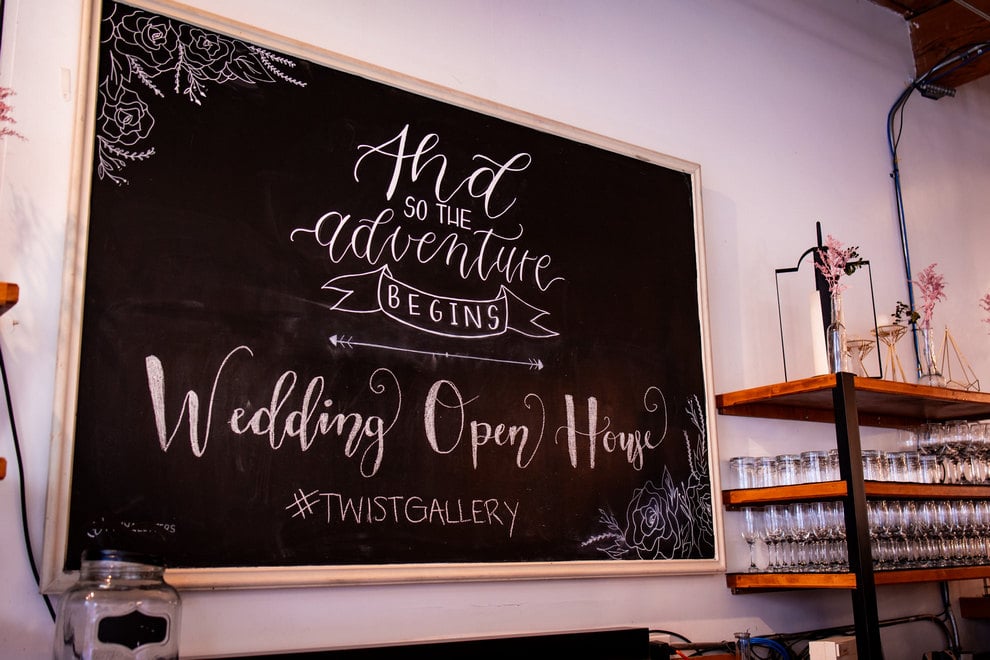 And
SO THE
adventure
BEGINS
Wedding Open House
#TWISTGALLERY